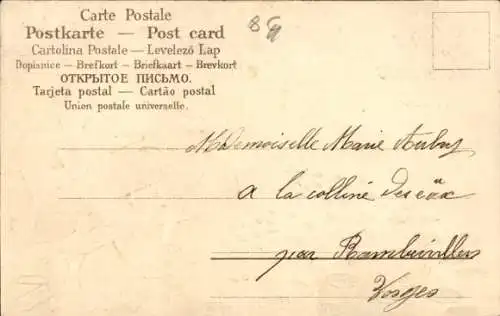 Carte Postale
Postkarte — Post card
Cartolina Postale — Levelező Lap
Dopisnice — Brefkort — Briefkaart — Brevkort
ОТКРЫТОЕ ПИСЬМО.
Tarjeta postal — Cartão postal
Union postale universelle.
Mademoiselle Marie Aubry
a la colline des
par Rambervillers
Vosges